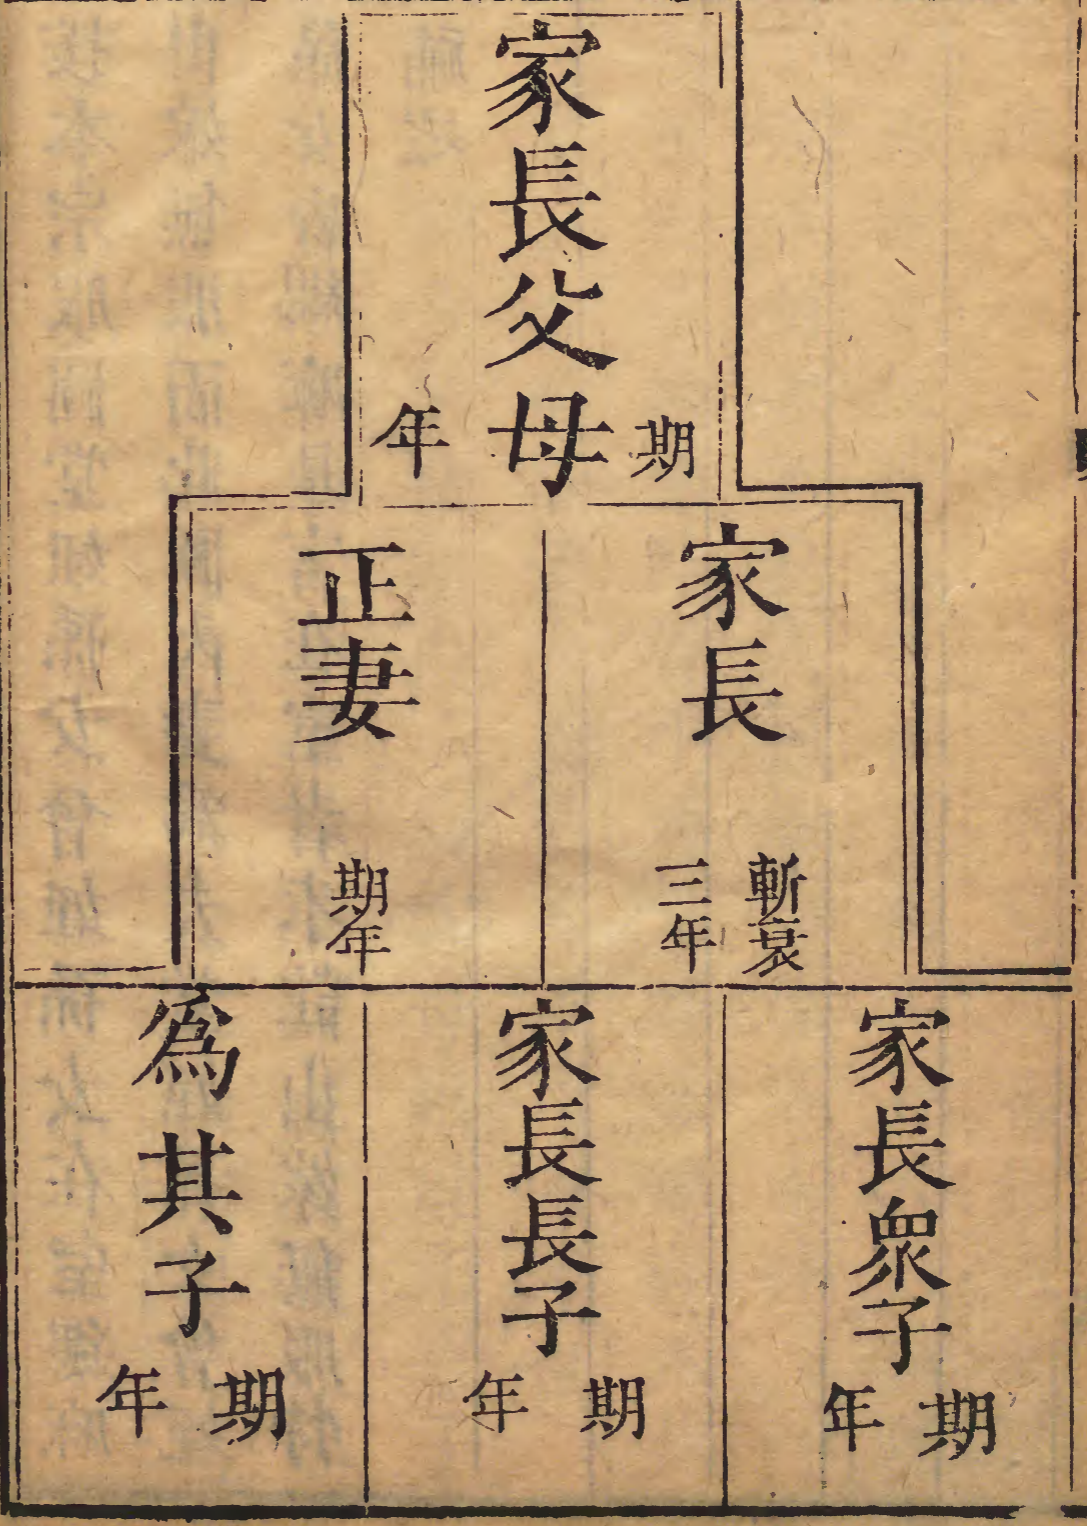 家長父母
期年
家長
斬衰
三年
正妻
期年
家長衆子
期年
家長長子
期年
為其子
期年